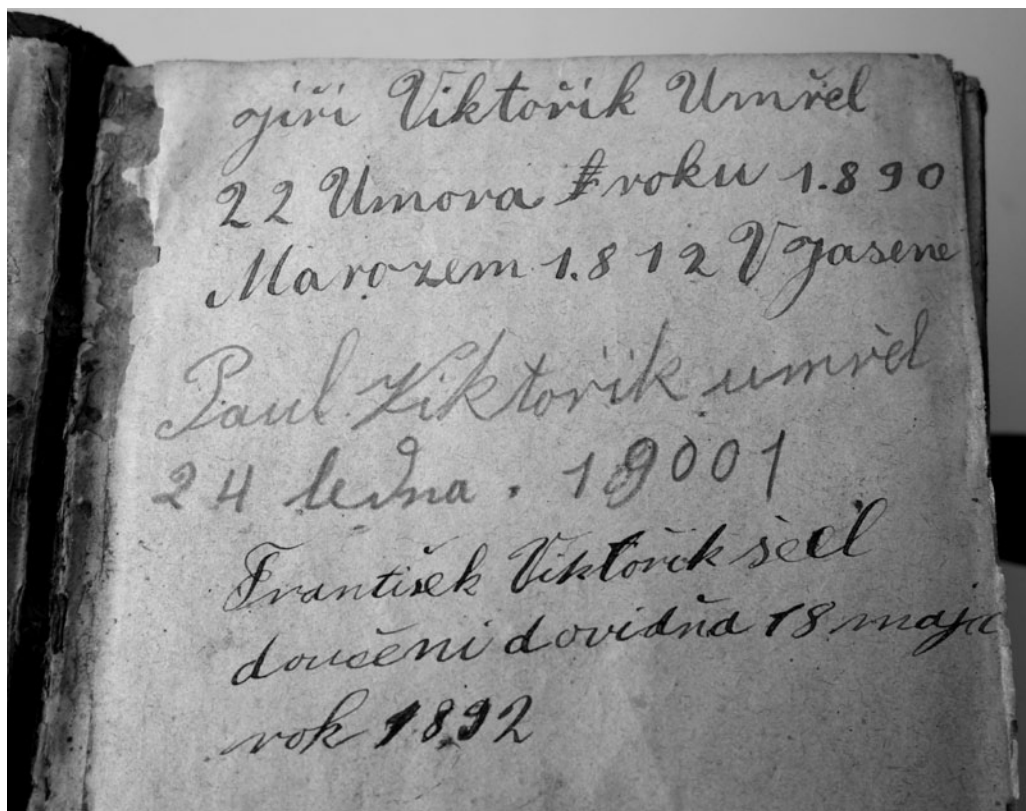 jiři Viktořik Umřel
22 Umora roku 1.890
Marozem 1.812 V Jasene
Paul Viktořik umřel
24 ledna . 19001
František Viktořik šeel
doučeni dovidňa 18 maja
rok 1892